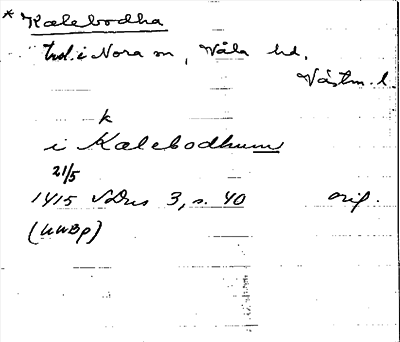 * Kalebodha
trol. i Nora sn, Våla hd,
Västm. l.
k
i Kalebodhum
21/5
1415 SDns 3, s. 40 orig.
(UUBp)